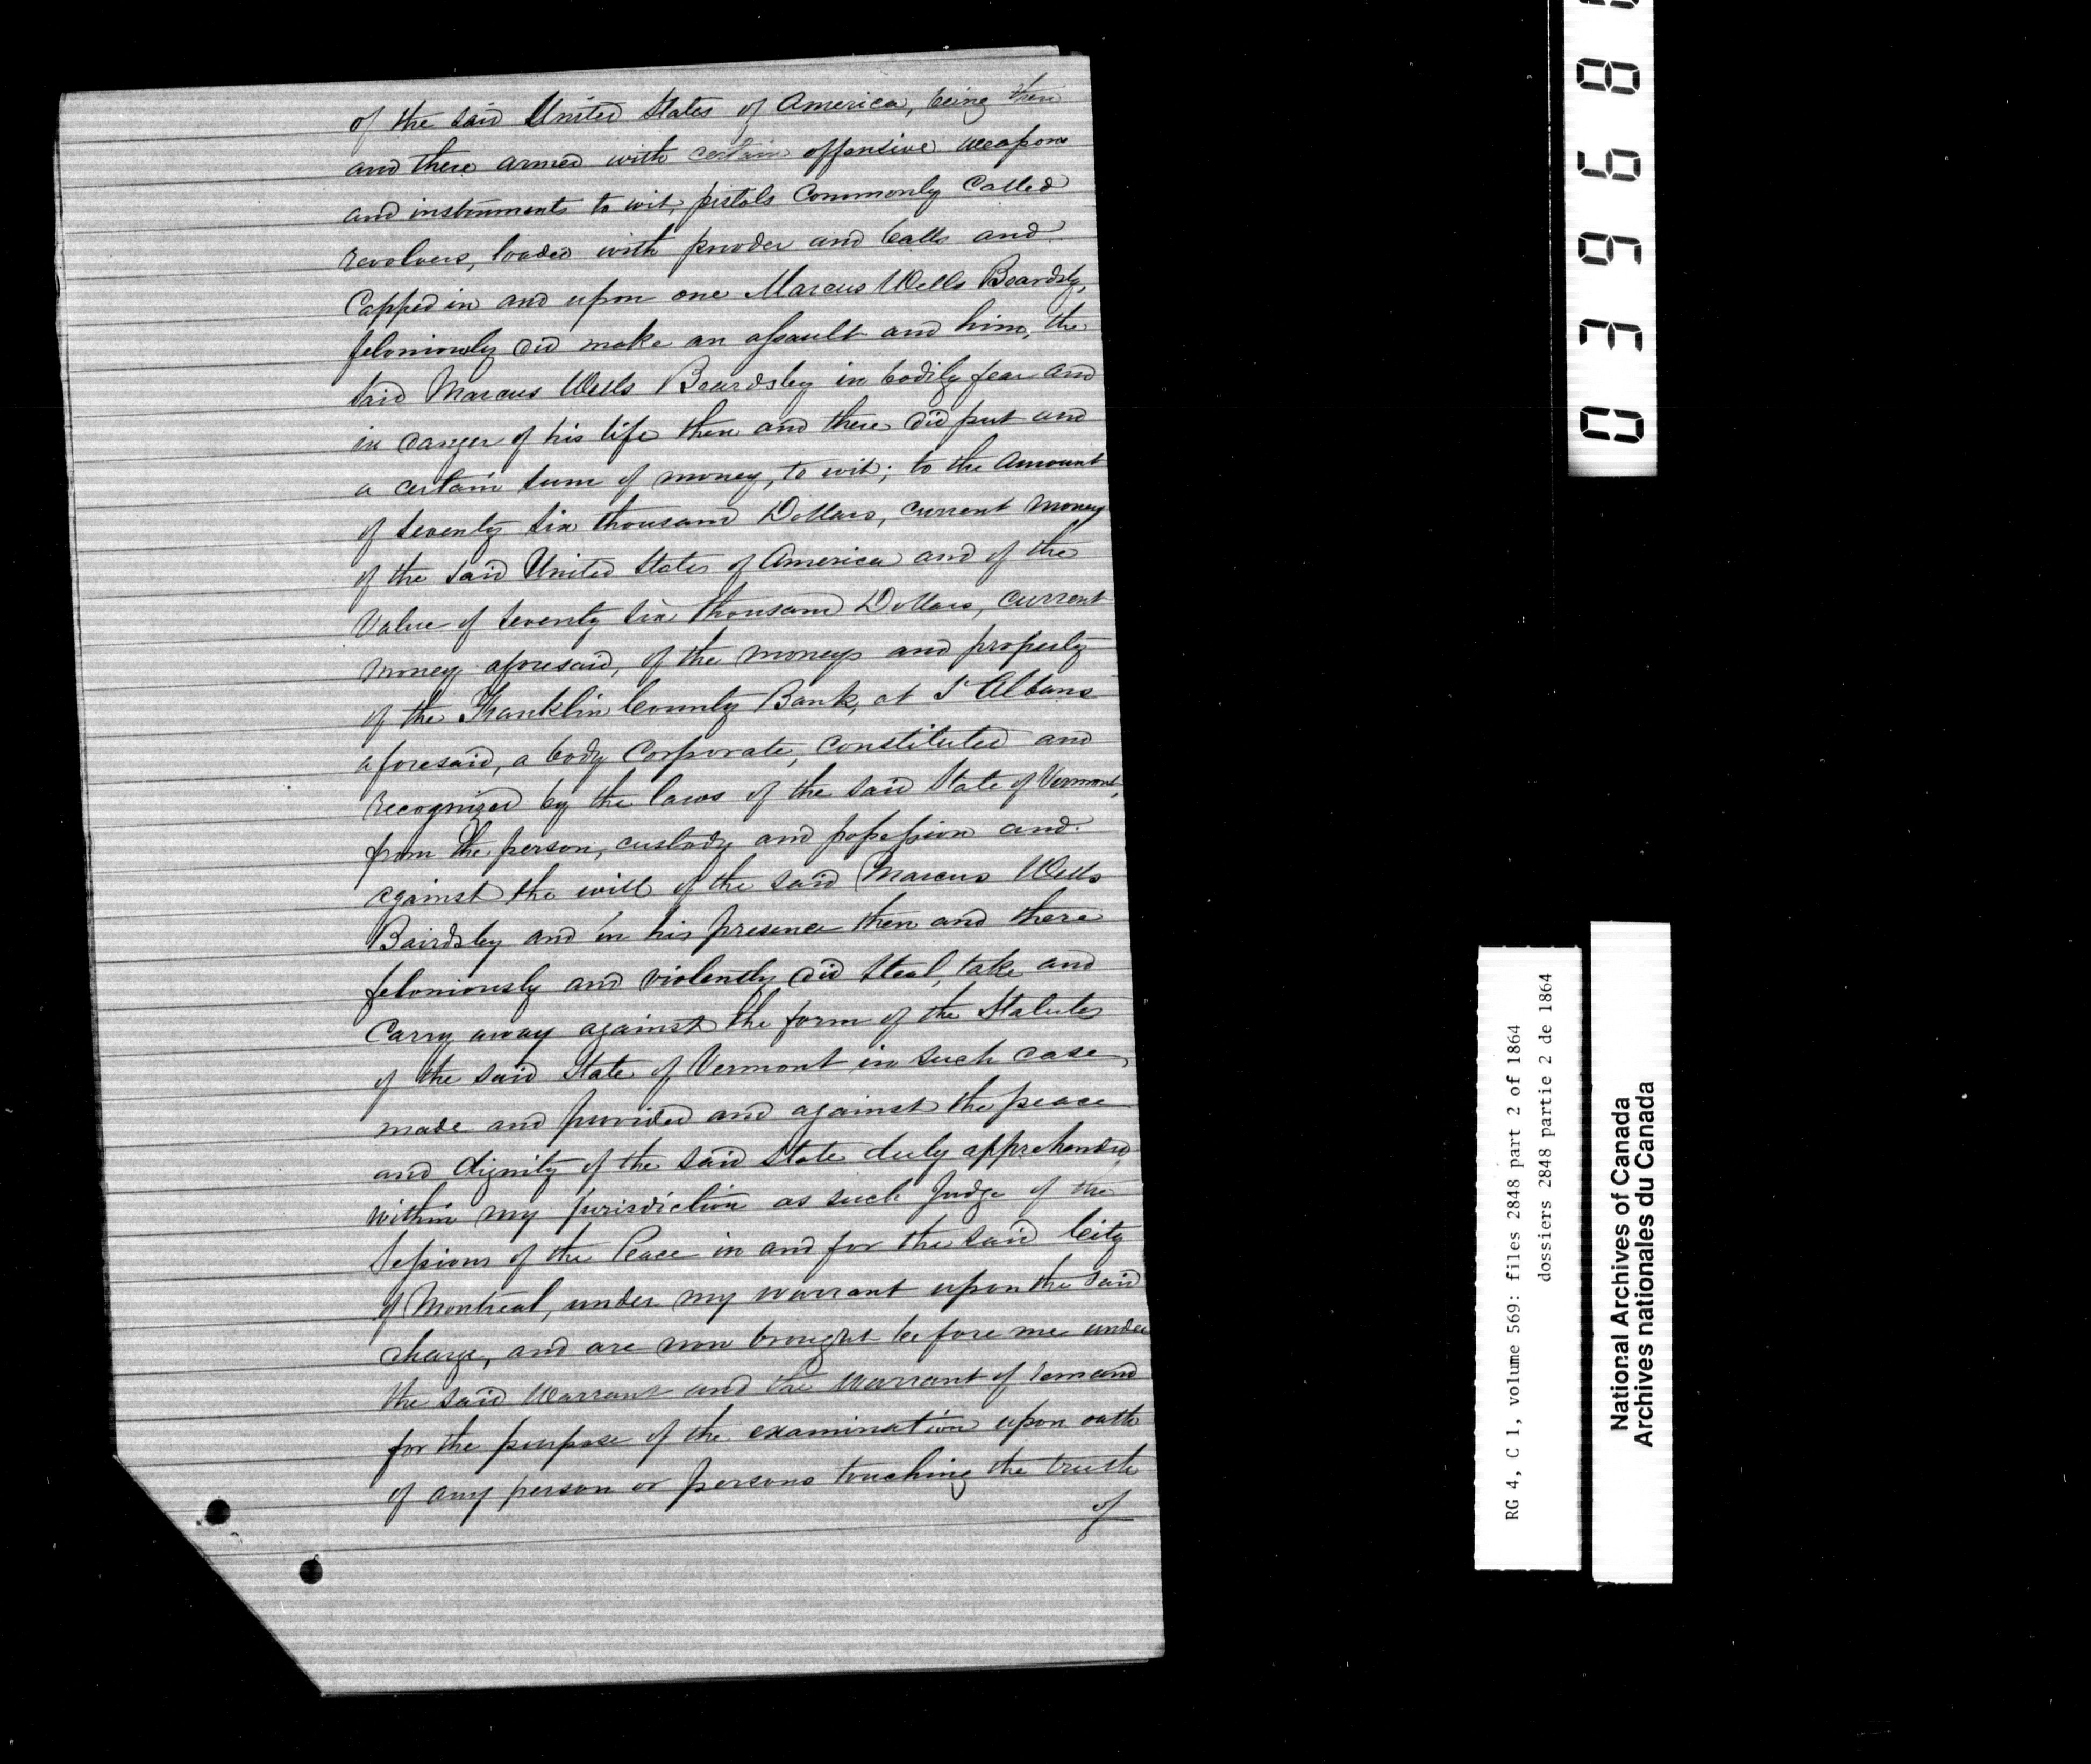 of the said United States of America, being then
and there armed with certain offensive weapons
and instruments to wit, pistols Commonly Called
revolvers, loaded with powder and balls and
Capped in and upon one Marcus Wells Beardsly,
feloniously did make an assault and him, the
said Marcus Wells Beardsley in bodily fear and
in danger of his life then and there did put and
a certain sum of money, to wit; to the amount
of seventy six thousand Dollars, current money
of the said United States of America and of the
Value of seventy six thousand Dollars, current
money aforesaid, of the moneys and property
of the Franklin County Bank, at St Albans
aforesaid, a body Corporate, constituted and
recognized by the laws of the said State of Vermont,
from the person, custody and possession and
against the will of the said Marcus Wells
Bairdsley and in his presence then and there
feloniously and violently did steal, take and
Carry away against the form of the Statutes
of the said State of Vermont in such case
made and provided and against the peace
and dignity of the said State duly apprehended
within my jurisdiction as such Judge of the
Sessions of the Peace in and for the said City
of Montreal, under my warrant upon the said
charge, and are now brought before me under
the said Warrant and the Warrant of remand
for the purpose of the examination upon oath
of any person or persons touching the truth
of
03968
RG 4, C 1, volume 569: files 2848 part 2 of 1864
dossiers 2848 partie 2 de 1864
National Archives of Canada
Archives nationales du Canada